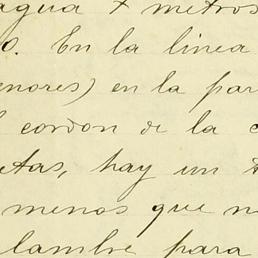 agua 7 metros
o. En la linea
enores) en la par
cordon de la c
etas, hay un
menos que n
lambre para